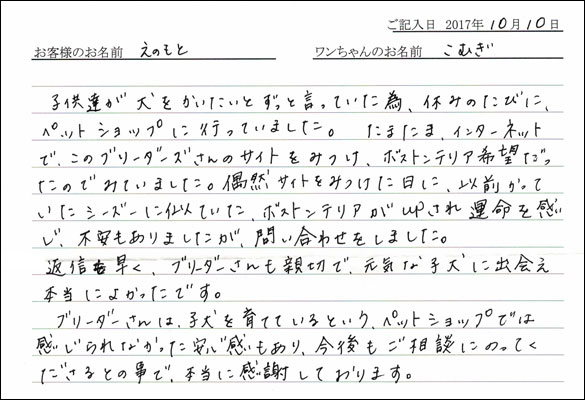 ご記入日 2017年 10月 10日
お客様のお名前 えのもと ワンちゃんのお名前 こむぎ
子供達が犬をかいたいとずっと言っていた為、休みのたびに、
ペットショップに行っていました。 たまたま、インターネット
で、このブリーダーズさんのサイトをみつけ、ボストンテリア希望だっ
たのでみていました。偶然サイトをみつけた日に、以前かって
いたシーズーに似ていた、ボストンテリアがupされ運命を感
じ、不安もありましたが、問い合わせをしました。
返信も早く、ブリーダーさんも親切で、元気な子犬に出会え
本当によかったです。
ブリーダーさんは、子犬を育てているという、ペットショップでは
感じられなかった安心感もあり、今後もご相談にのってく
ださるとの事で、本当に感謝しております。